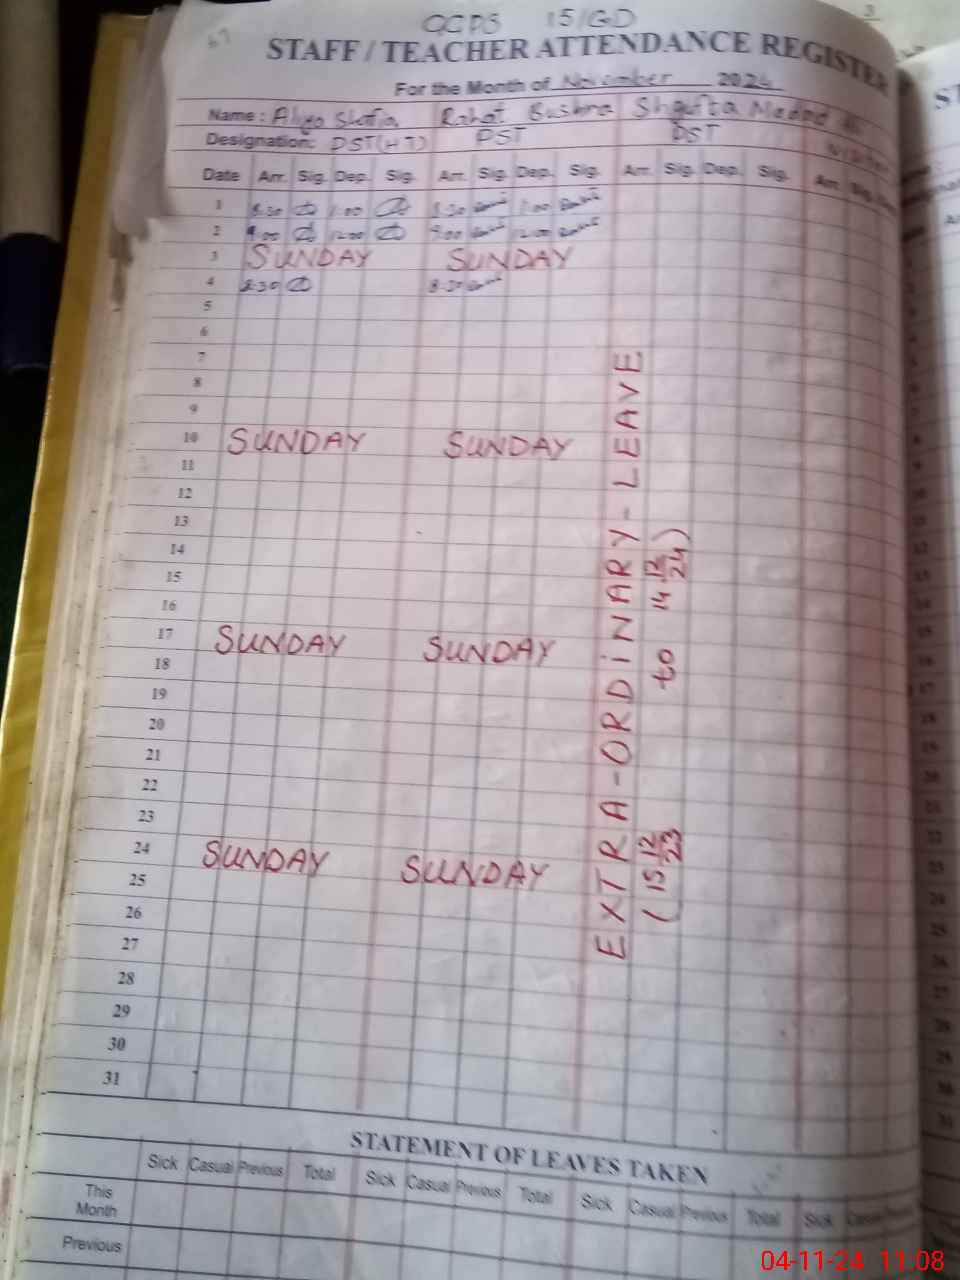 GCPS 15/GD
STAFF / TEACHER ATTENDANCE REGISTER
For the Month of November 2024
Name: Rahat Bushra Shgufta
Designation: PST(HT) PST PST
Date Arr. Sig. Dep. Sig. Arr. Sig. Dep. Sig. Arr. Sig. Dep. Sig. Arr. Sig.
1 8.30 1.00 8.30 1.00
2 9.00 12.00 9.00 12.00
3 SUNDAY SUNDAY
4 8.30 8.30
5
6
7
8
9
10 SUNDAY SUNDAY
11
12
13
14
15
16
17 SUNDAY SUNDAY
18
19
20
21
22
23
24 SUNDAY SUNDAY
25
26
27
28
29
30
31
EXTRA-ORDINARY-LEAVE
(15 12/23 to 14 12/24)
STATEMENT OF LEAVES TAKEN
Sick Casual Previous Total Sick Casual Previous Total Sick Casual Previous Total Sick Casual Previous
This Month
Previous
04-11-24 11:08